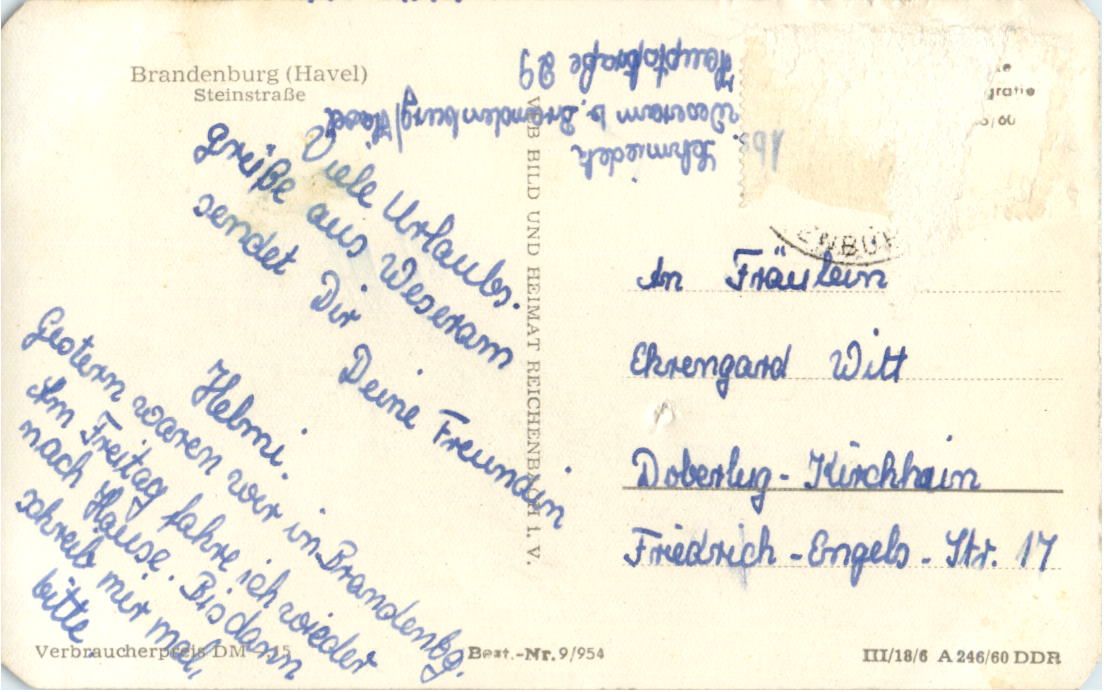 Brandenburg (Havel)
Steinstraße
Viele Urlaubs-
grüße aus Weseram
sendet Dir
Deine Freundin
Helmi.
Gestern waren wir in Brandenbg.
Am Freitag fahre ich wieder
nach Hause. Bis dann
schreib mir mal,
bitte.
Verbraucherpreis DM
Best.-Nr. 9/954
VEB BILD UND HEIMAT REICHENBACH I. V.
Abs.
Schmiedek
Weseram b. Brandenburg/Havel
Hauptstraße 29
An Fräulein
Ehrengard Witt
Doberlug-Kirchhain
Friedrich-Engels-Str. 17
III/18/6 A 246/60 DDR